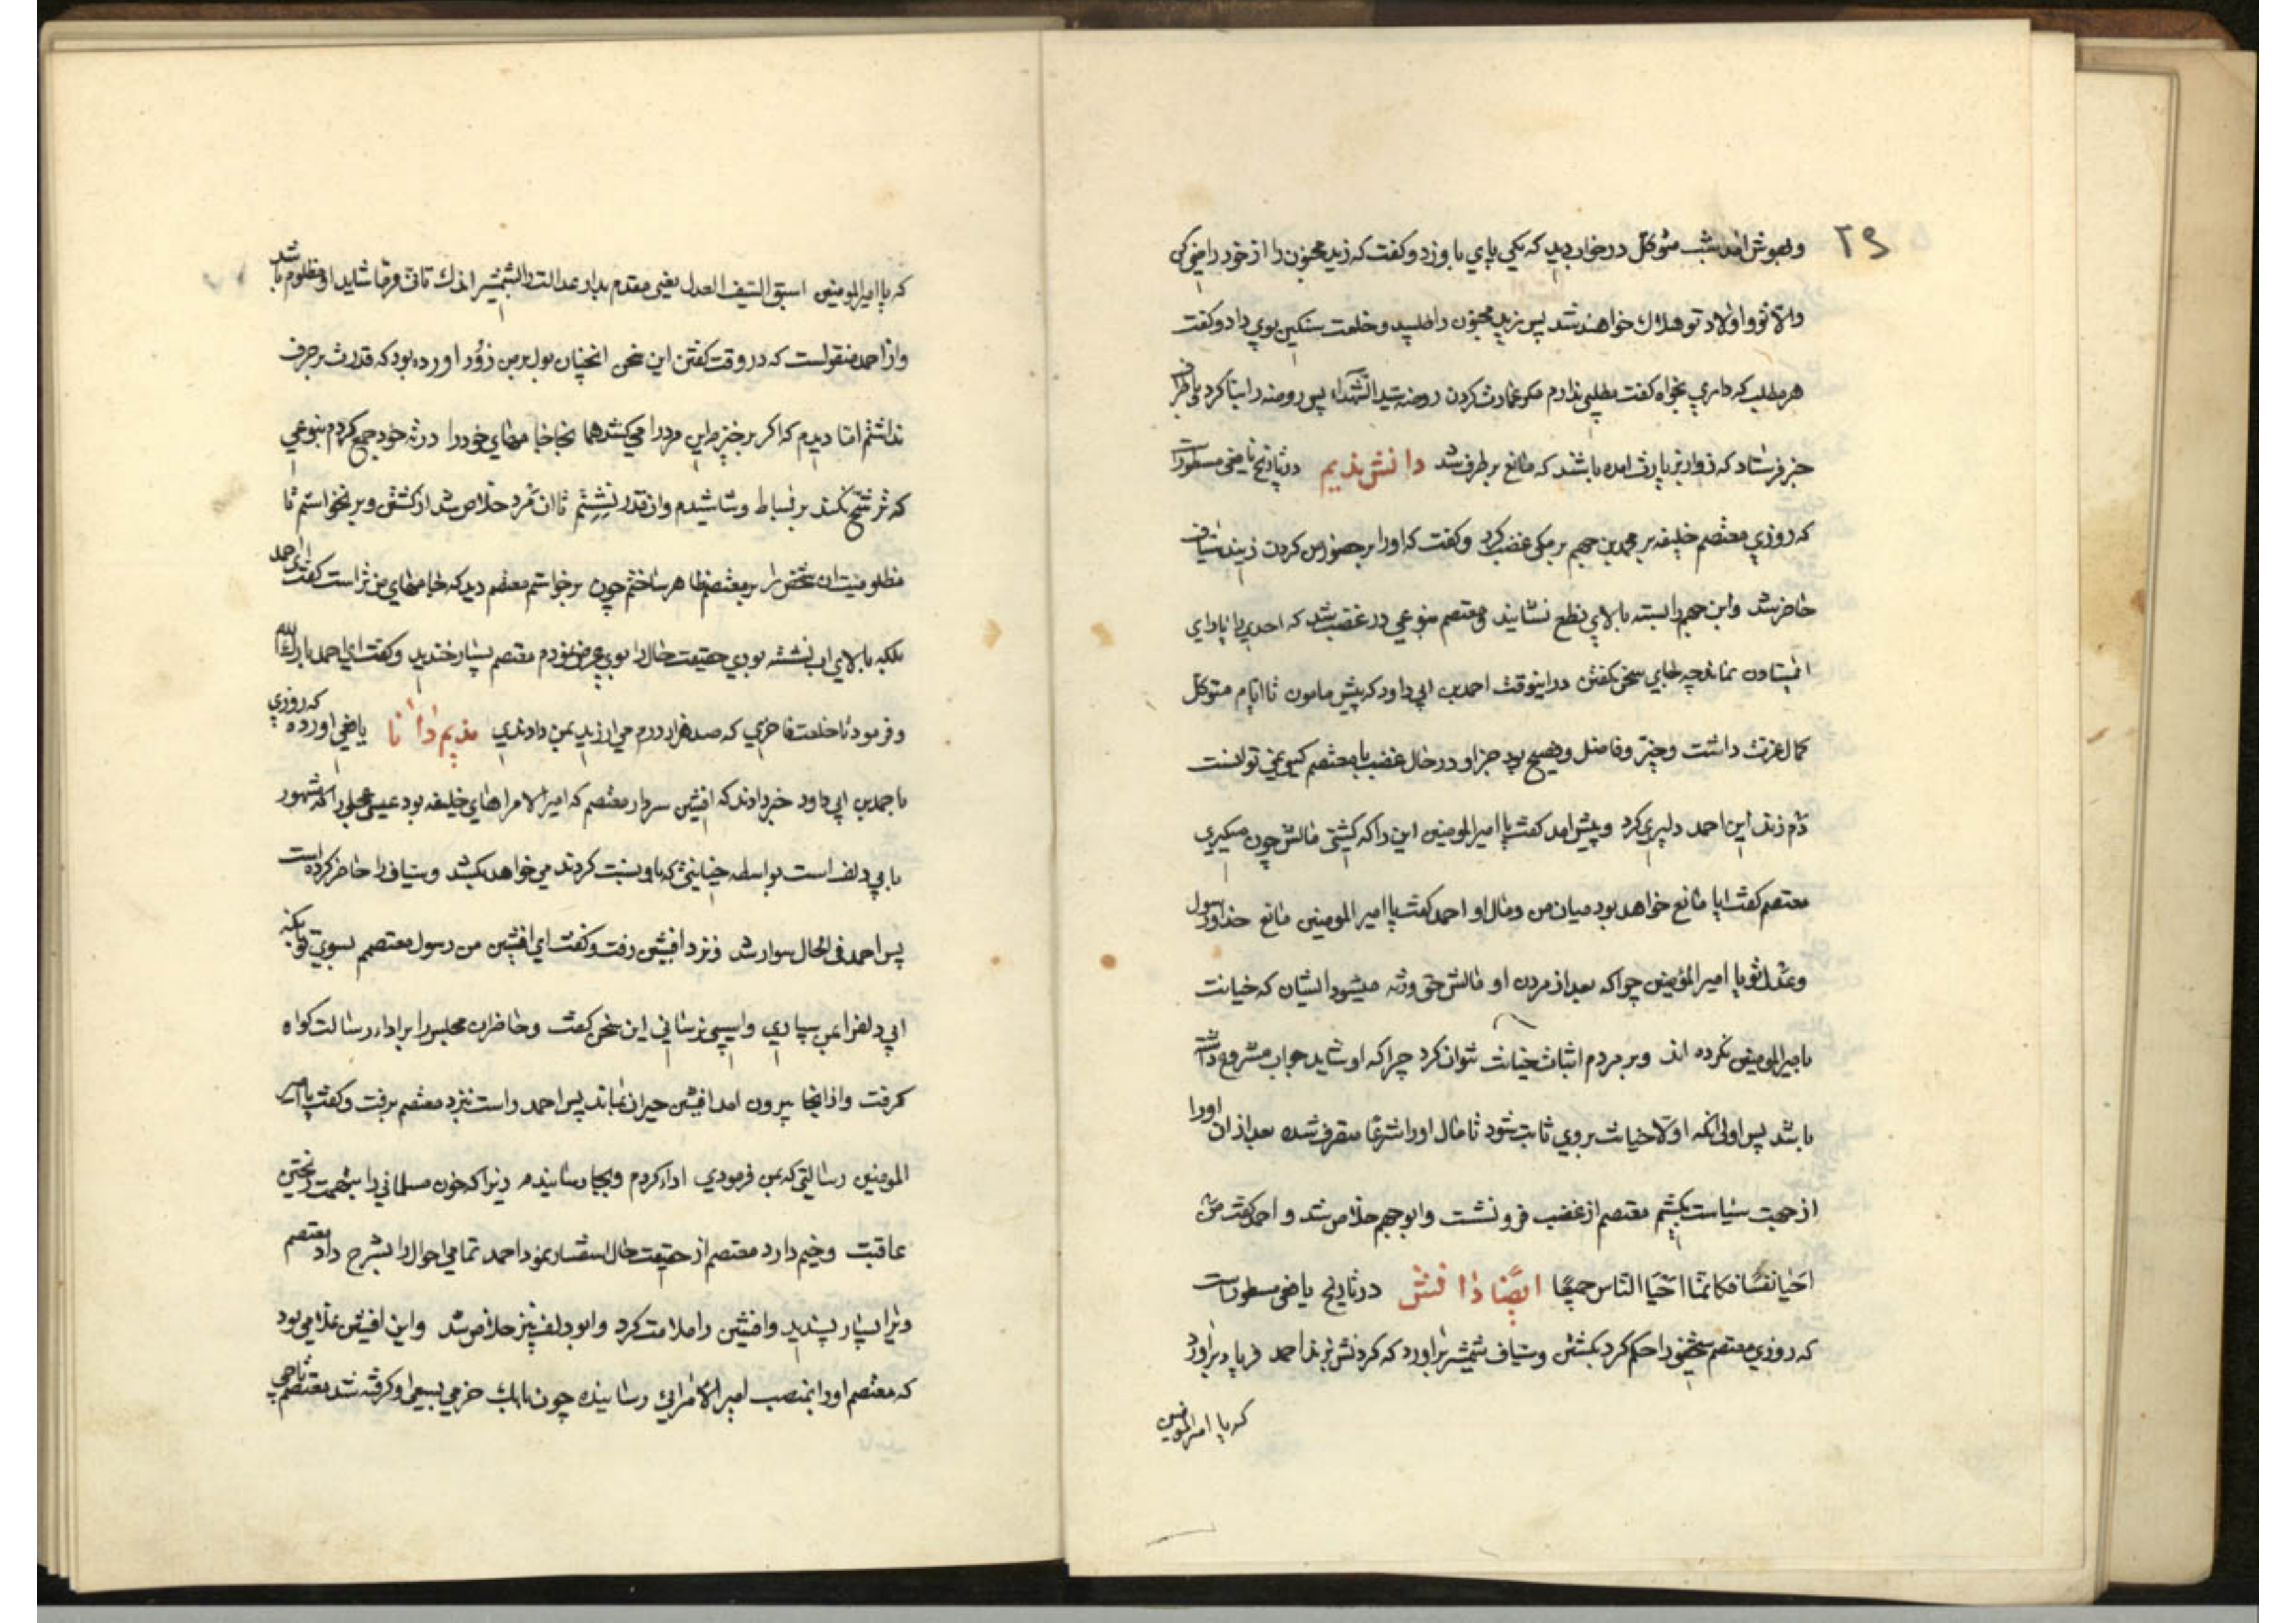 ۲۹
و بهوش آمد شب متوکل در خواب دید که یکی پای باو زد و کفت که زید مجنون را از خود راضی کن
والا تو و اولاد تو هلاک خواهند شد پس زید مجنون را طلبید و خلعت سنکین بوی داد و کفت
هر مطلب که داری بخواه کفت مطلبی ندارم مکر عمارت کردن روضه سید الشهداء پس روضه را بنا کرد و باطراف
خبر فرستاد که زوار بزیارت آمده باشند که مانع بر طرف شد دانش ندیم در تاریخ یافعی مسطور است
که روزی معتصم خلیفه بر محمد بن جهم برمکی غضب کرد و کفت که او را بر حضور من کردن زنید سیاف
حاضر شد و ابن جهم را بسته بالای نطع نشانید و معتصم بنوعی در غضب شد که احدی را یارای
ایستادن نماند چه جای سخن کفتن در اینوقت احمد بن ابی داود که پیش مامون تا ایام متوکل
کمال عزت داشت و خیر و فاضل و فصیح بود جز او در حال غضب با معتصم کسی نمی توانست
دم زند این احمد دلیری کرد و پیش آمد کفت یا امیر المومنین این را که کشتی مالش چون میکیری
معتصم کفت ایا مانع خواهد بود میان من و مال او احمد کفت یا امیر المومنین مانع خدا و رسول
و عدل تو یا امیر المؤمنین چرا که بعد از مردن او مالش حق ورثه میشود ایشان که خیانت
بامیر المومنین نکرده اند و بر مردم اثبات خیانت نتوان کرد چرا که او شاید جواب مشروع داشته
باشد پس اولی آنکه اولا خیانت بر وی ثابت شود تا مال او را شرعا متصرف شده بعد از ان او را
از جهت سیاست بکشیم معتصم از غضب فرو نشست و ابو جهم خلاص شد و احمد کفت من
احیا نفسا فکانما احیا الناس جمیعا ایضا دانش در تاریخ یافعی مسطور است
که روزی معتصم شخصی را حکم کرد بکشتن و سیاف شمشیر براورد که کردنش بزند احمد فریاد براورد
که یا امیر المومنین
که یا امیر المومنین اسبق السیف العدل یعنی مقدم بدار عدالت را بشمشیر اندک تانی فرما شاید او مظلوم باشد
و از احمد منقولست که در وقت کفتن این سخن انچنان بول بر من زور اورده بود که قدرت بر حرف
نداشتم اما دیدم که اکر برخیزم این مرد را می کشد همانجا جامهای خود را در ته خود جمع کردم بنوعی
که ترشح نکند بر بساط و شاشیدم و انقدر نشستم تا ان مرد خلاص شد از کشتن و بر نخواستم تا
مظلومیت ان شخص را بر معتصم ظاهر ساختم چون برخواستم معتصم دید که جامهای من تر است کفت ای احمد
بلکه بالای آب نشسته بودی حقیقت حال را بوی عرض نمودم معتصم بسیار خندید و کفت ای احمد بارک الله
و فرمود تا خلعت فاخری که صد هزار درم می ارزید بمن دادندی ندیم دانا یافعی اورده که روزی
باحمد بن ابی داود خبر دادند که افشین سردار معتصم که امیر الامراهای خلیفه بود عیسی عجلی را که مشهور
بابی دلف است بواسطه خیانتی که باو نسبت کردند می خواهد بکشد و سیاف را حاضر کرده است
پس احمد فی الحال سوار شد و نزد افشین رفت و کفت ای افشین من رسول معتصمم بسوی تو بانکه
ابی دلف را بمن سپاری و اسیبی نرسانی این سخن کفت و حاضران مجلس را بر اداء رسالت کواه
کرفت و از انجا بیرون امد افشین حیران بماند پس احمد راست نزد معتصم برفت و کفت یا امیر
المومنین رسالتی که بمن فرمودی اداء کردم و بجا رسانیدم زیرا که خون مسلمانی را بتهمت ریختن
عاقبت وخیم دارد معتصم از حقیقت حال استفسار نمود احمد تمامی احوال را بشرح داد معتصم
ویرا بسیار پسندید و افشین را ملامت کرد و ابو دلف نیز خلاص شد و این افشین غلامی بود
که معتصم او را بمنصب امیر الامرایی رسانیده چون بابک خرمی بسعی او کرفته شد معتصم تاجی